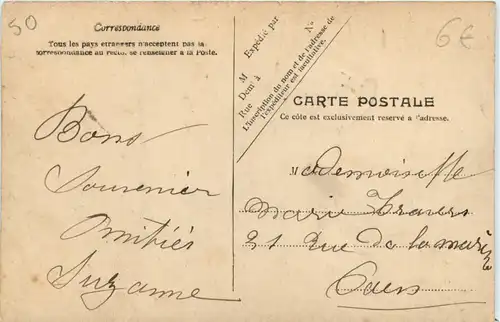 50
6€
Correspondance
Tous les pays étrangers n'acceptent pas la
correspondance au recto, se renseigner à la Poste.
Expédié par
M
Dem^t à
Rue
N°
L'inscription du nom et de l'adresse de
l'expéditeur est facultative.
CARTE POSTALE
Ce côté est exclusivement réservé à l'adresse.
Bons
Souvenier
Amitiés
Suzanne
Mademoiselle
Marie Travers
21 Rue De la
Caen